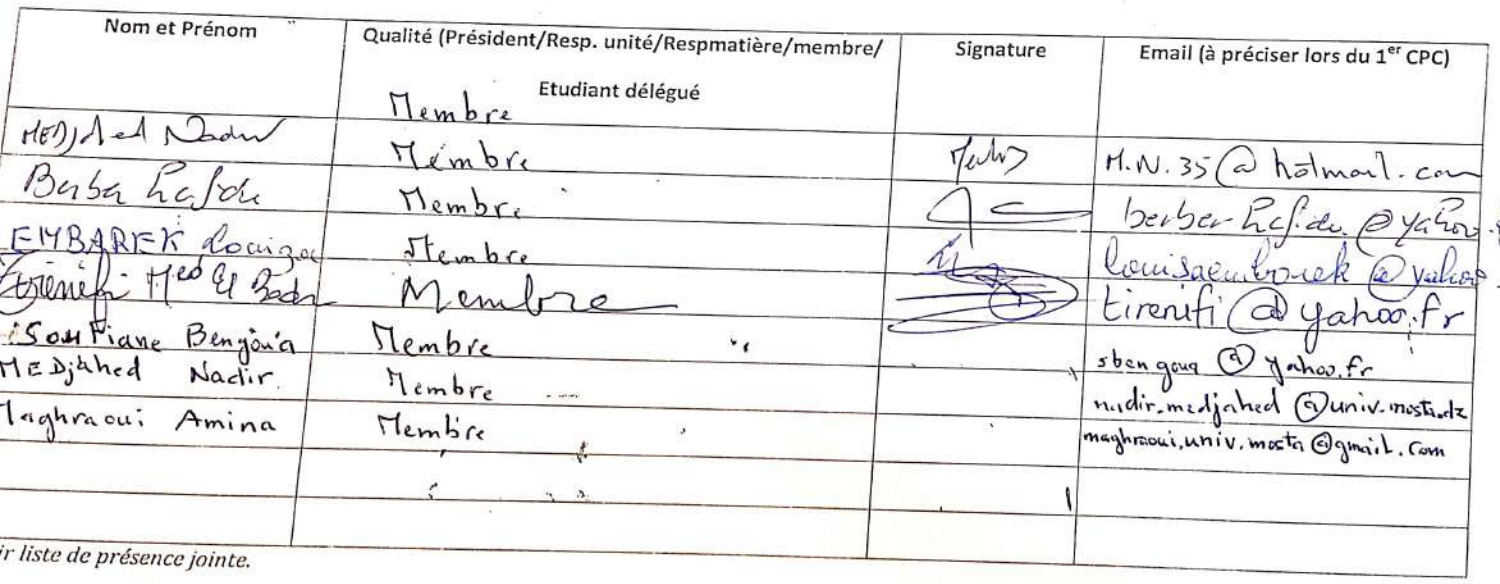 Nom et Prénom Qualité (Président/Resp. unité/Respmatière/membre/ Signature Email (à préciser lors du 1er CPC)
Etudiant délégué
Membre
MEDjahed Nadir Membre M.N.35@hotmail.com
Membre
EMBAREK Louiza Membre louisaembarek@yahoo
Med El Badr Membre tirenifi@yahoo.fr
Soufiane Bengoua Membre sbengoua@yahoo.fr
MEDjahed Nadir. Membre nadir.medjahed@univ.mosta.dz
Maghraoui Amina Membre maghraoui.univ.mosta@gmail.com
ir liste de présence jointe.